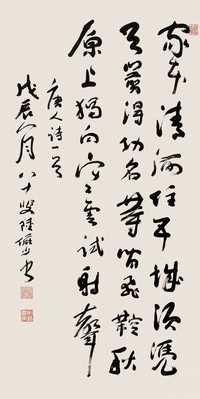 家本清河住五城須憑
弓箭得功名等閒飛鞚秋
原上獨向寒雲試射聲
唐人詩一首
戊辰八月八十叟陸儼少書